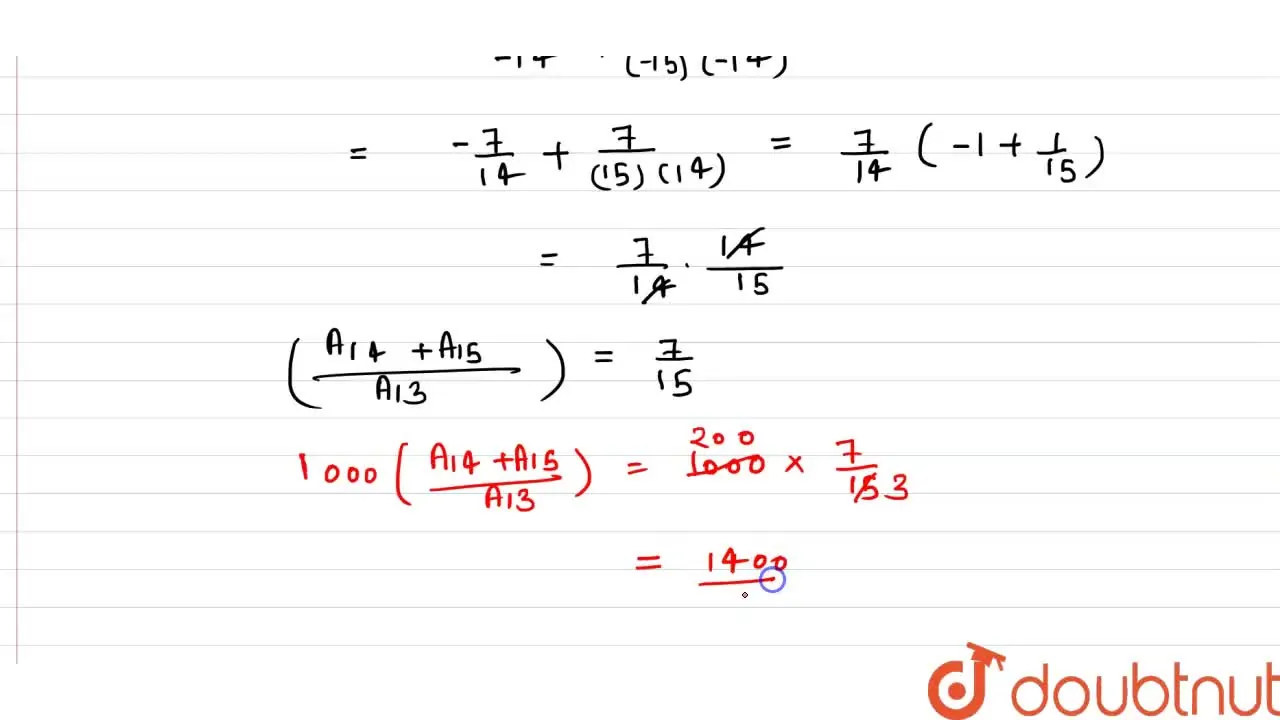 -14 (-15) (-14)
= -7/14 + 7/(15)(14) = 7/14 ( -1 + 1/15 )
= 7/14 . 14/15
( A14 + A15 / A13 ) = 7/15
200
1000 ( A14 + A15 / A13 ) = 1000 × 7/15 3
= 1400
doubtnut